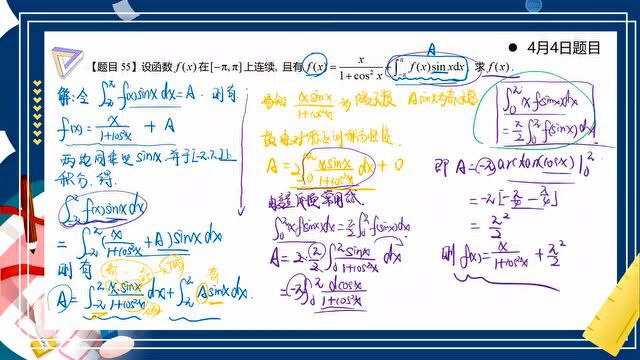 4月4日题目
【题目 55】设函数 f(x) 在[-π,π]上连续, 且有 f(x)=x/(1+cos²x)+∫_{-π}^{π} f(x)sin xdx, 求 f(x).
A
解:令 ∫_{-π}^{π} f(x)sinxdx=A. 则有
f(x)=x/(1+cos²x) + A
两边同乘以 sinx, 并于[-π,π]上
积分, 得.
∫_{-π}^{π} f(x)sinxdx
=∫_{-π}^{π}(x/(1+cos²x)+A)sinxdx
则有
A=∫_{-π}^{π} xsinx/(1+cos²x) dx+∫_{-π}^{π} Asinxdx.
xsinx/(1+cos²x) 为偶函数 Asinx为奇函数
A=2∫_0^π xsinx/(1+cos²x) dx+0
∫_0^π xf(sinx)dx=π/2∫_0^π f(sinx)dx
A=2·π/2∫_0^π sinx/(1+cos²x) dx
=(-π)∫_0^π dcosx/(1+cos²x)
∫_0^π xf(sinx)dx
=π/2∫_0^π f(sinx)dx
即 A=(-π)arctan(cosx)|_0^π
=-π[-π/4-π/4]
=π²/2
则 f(x)=x/(1+cos²x)+π²/2